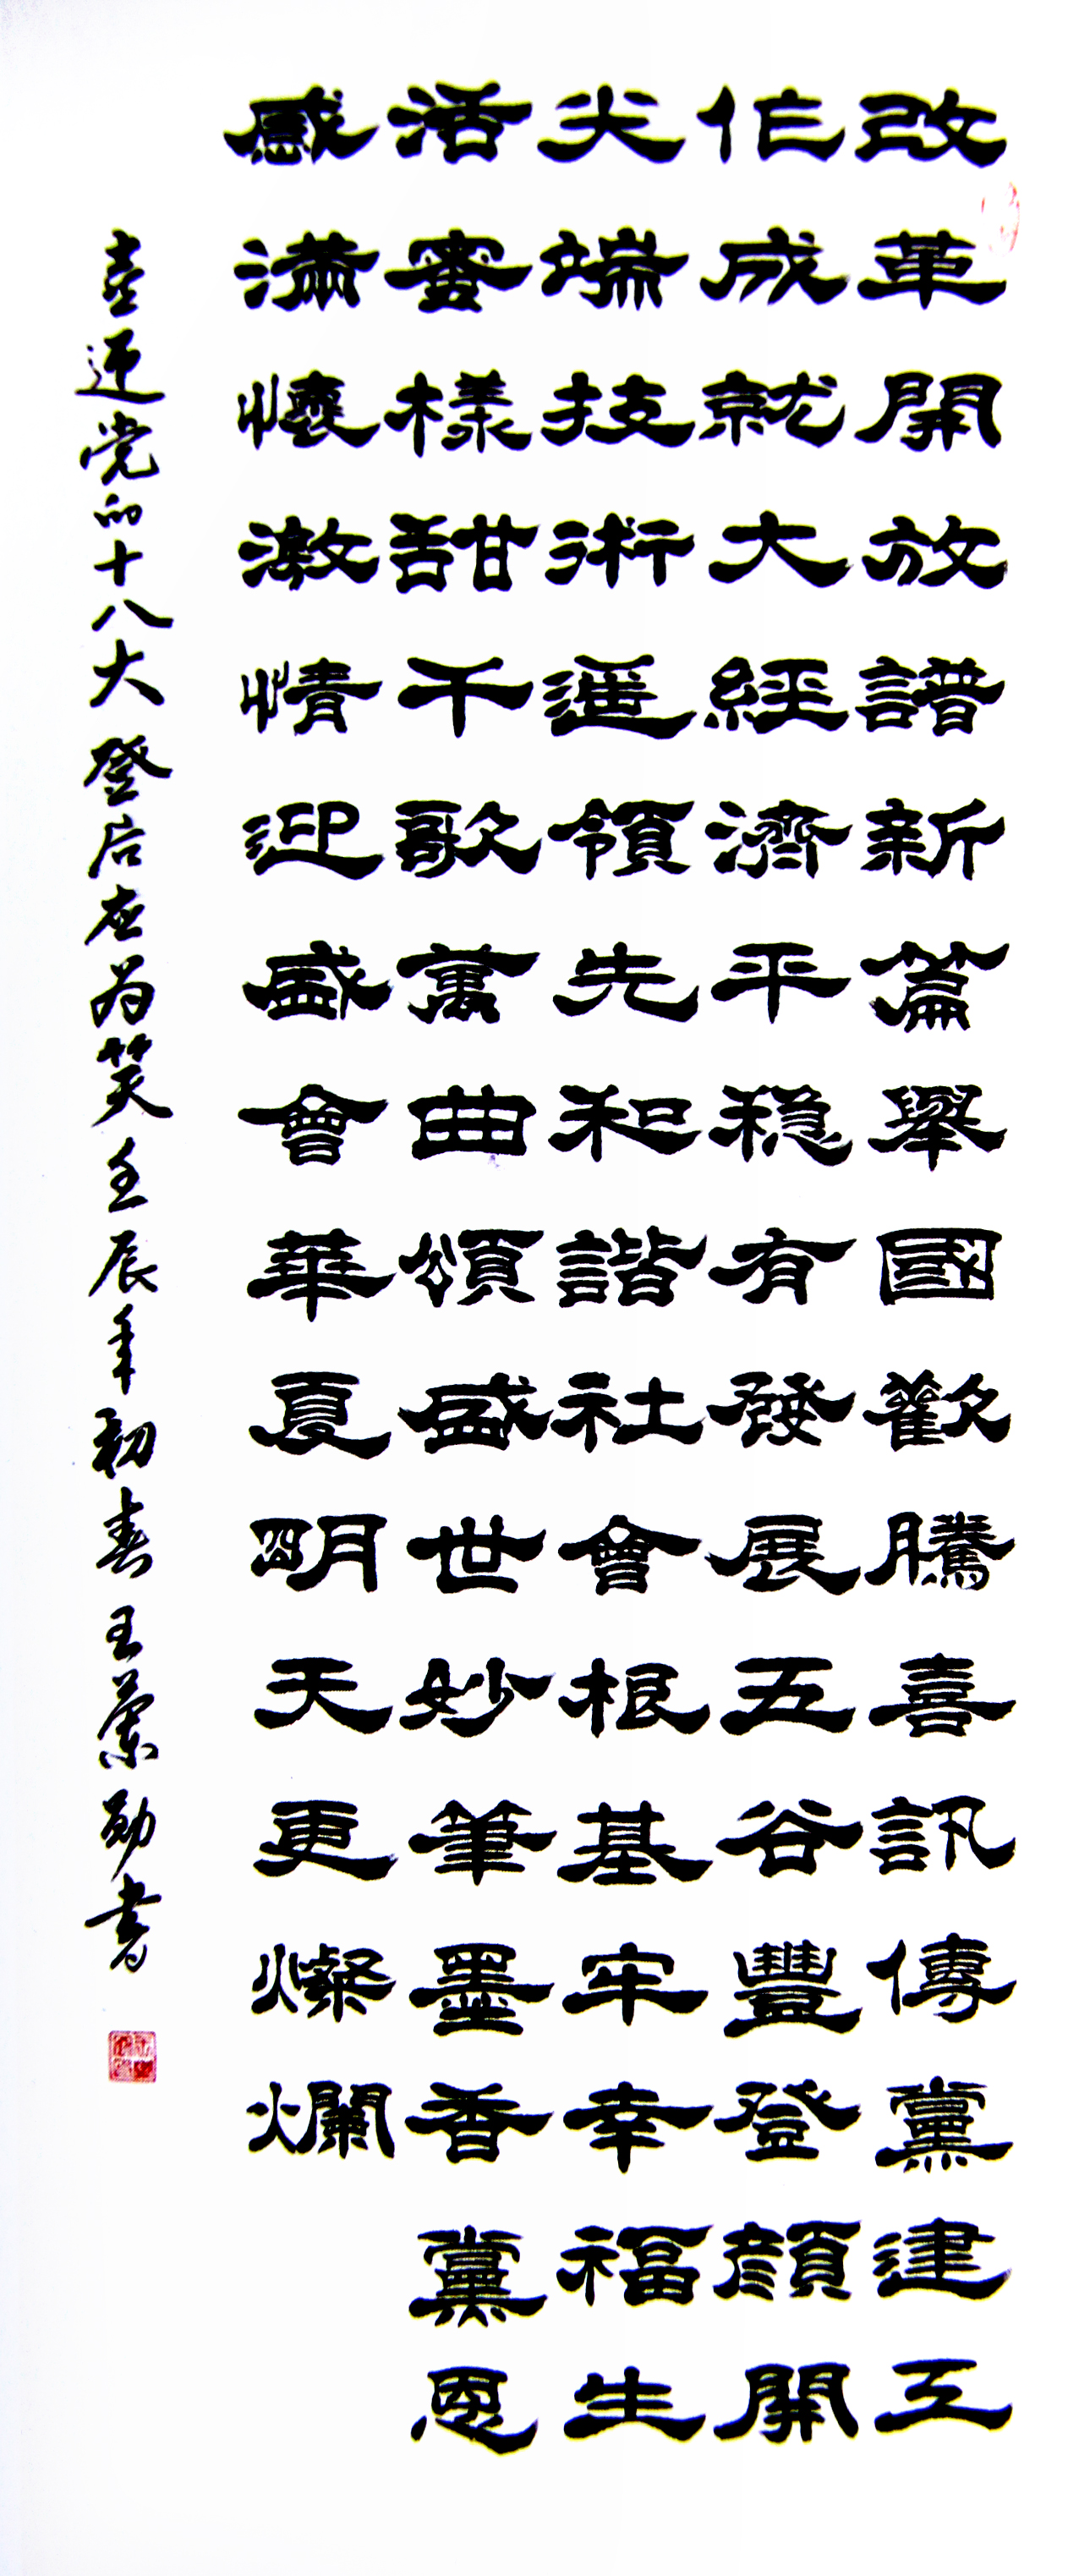 改革開放譜新篇舉國歡騰喜訊傳黨建工
作成就大經濟平稳有發展五谷豐登顏開
尖端技術遥領先和諧社會根基牢幸福生
活蜜樣甜千歌萬曲頌盛世妙筆墨香黨恩
感滿懷激情迎盛會華夏明天更燦爛
喜迎党的十八大 登启在为笑 壬辰年初春 王蘭勋書